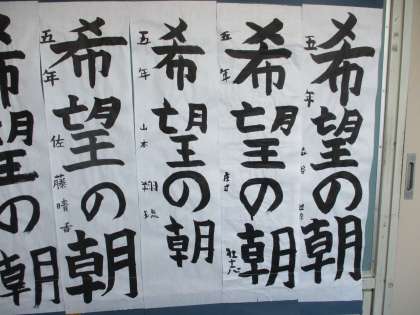 希望の朝
五年
希望の朝
五年
希望の朝
五年 山本
希望の朝
五年 佐藤晴香
希望の朝